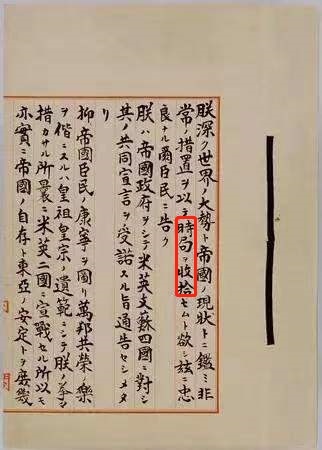 朕深ク世界ノ大勢ト帝國ノ現狀トニ鑑ミ非
常ノ措置ヲ以テ時局ヲ收拾セムト欲シ茲ニ忠
良ナル爾臣民ニ告ク
朕ハ帝國政府ヲシテ米英支蘇四國ニ對シ
其ノ共同宣言ヲ受諾スル旨通告セシメタ
リ
抑〻帝國臣民ノ康寧ヲ圖リ萬邦共榮ノ樂
ヲ偕ニスルハ皇祖皇宗ノ遺範ニシテ朕ノ拳〻
措カサル所曩ニ米英二國ニ宣戰セル所以モ
亦實ニ帝國ノ自存ト東亞ノ安定トヲ庶幾